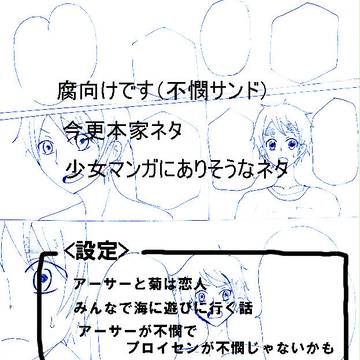 腐向けです(不憫サンド)
今更本家ネタ
少女マンガにありそうなネタ
<設定>
アーサーと菊は恋人
みんなで海に遊びに行く話
アーサーが不憫で
プロイセンが不憫じゃないかも